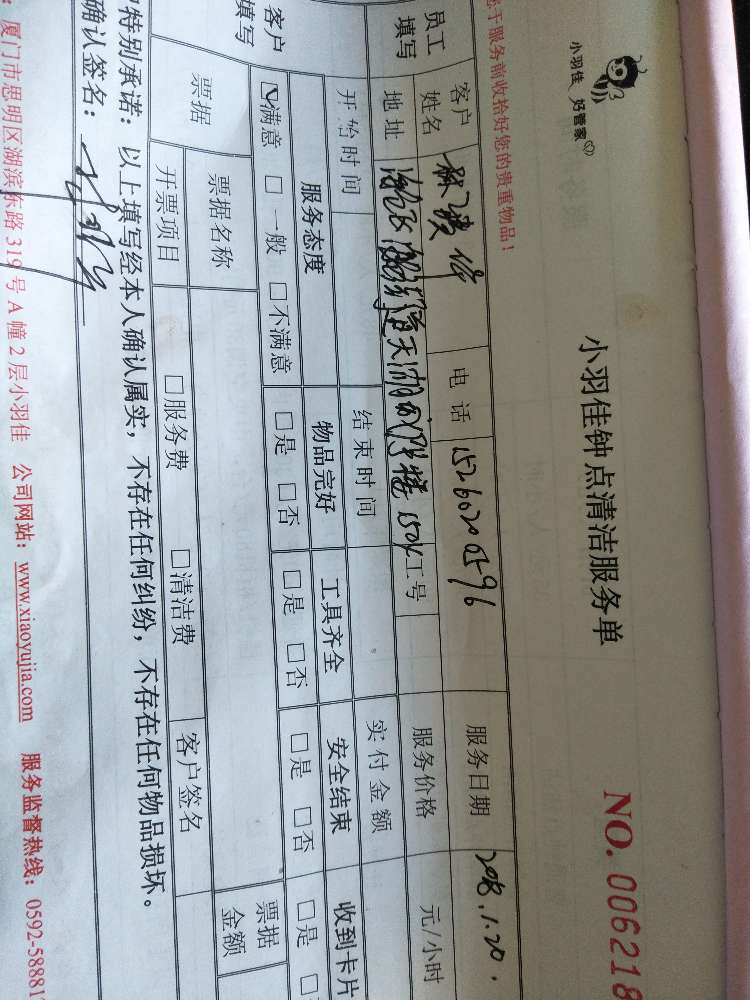 小羽佳 好管家
小羽佳钟点清洁服务单
NO. 006218
于服务前收拾好您的贵重物品！
员工填写 客户姓名 电话 15260205596 服务日期 2018.1.20.
地址 天湖 1504 工号 服务价格 元/小时
开始时间 结束时间 实付金额
客户填写 服务态度 物品完好 工具齐全 安全结束 收到卡片
☑满意 □一般 □不满意 □是 □否 □是 □否 □是 □否 □是 □
票据 票据名称 票据金额
开票项目 □服务费 □清洁费 客户签名
特别承诺：以上填写经本人确认属实，不存在任何纠纷，不存在任何物品损坏。
确认签名：
厦门市思明区湖滨东路 319 号 A 幢 2 层小羽佳 公司网站：www.xiaoyujia.com 服务监督热线：0592-58881